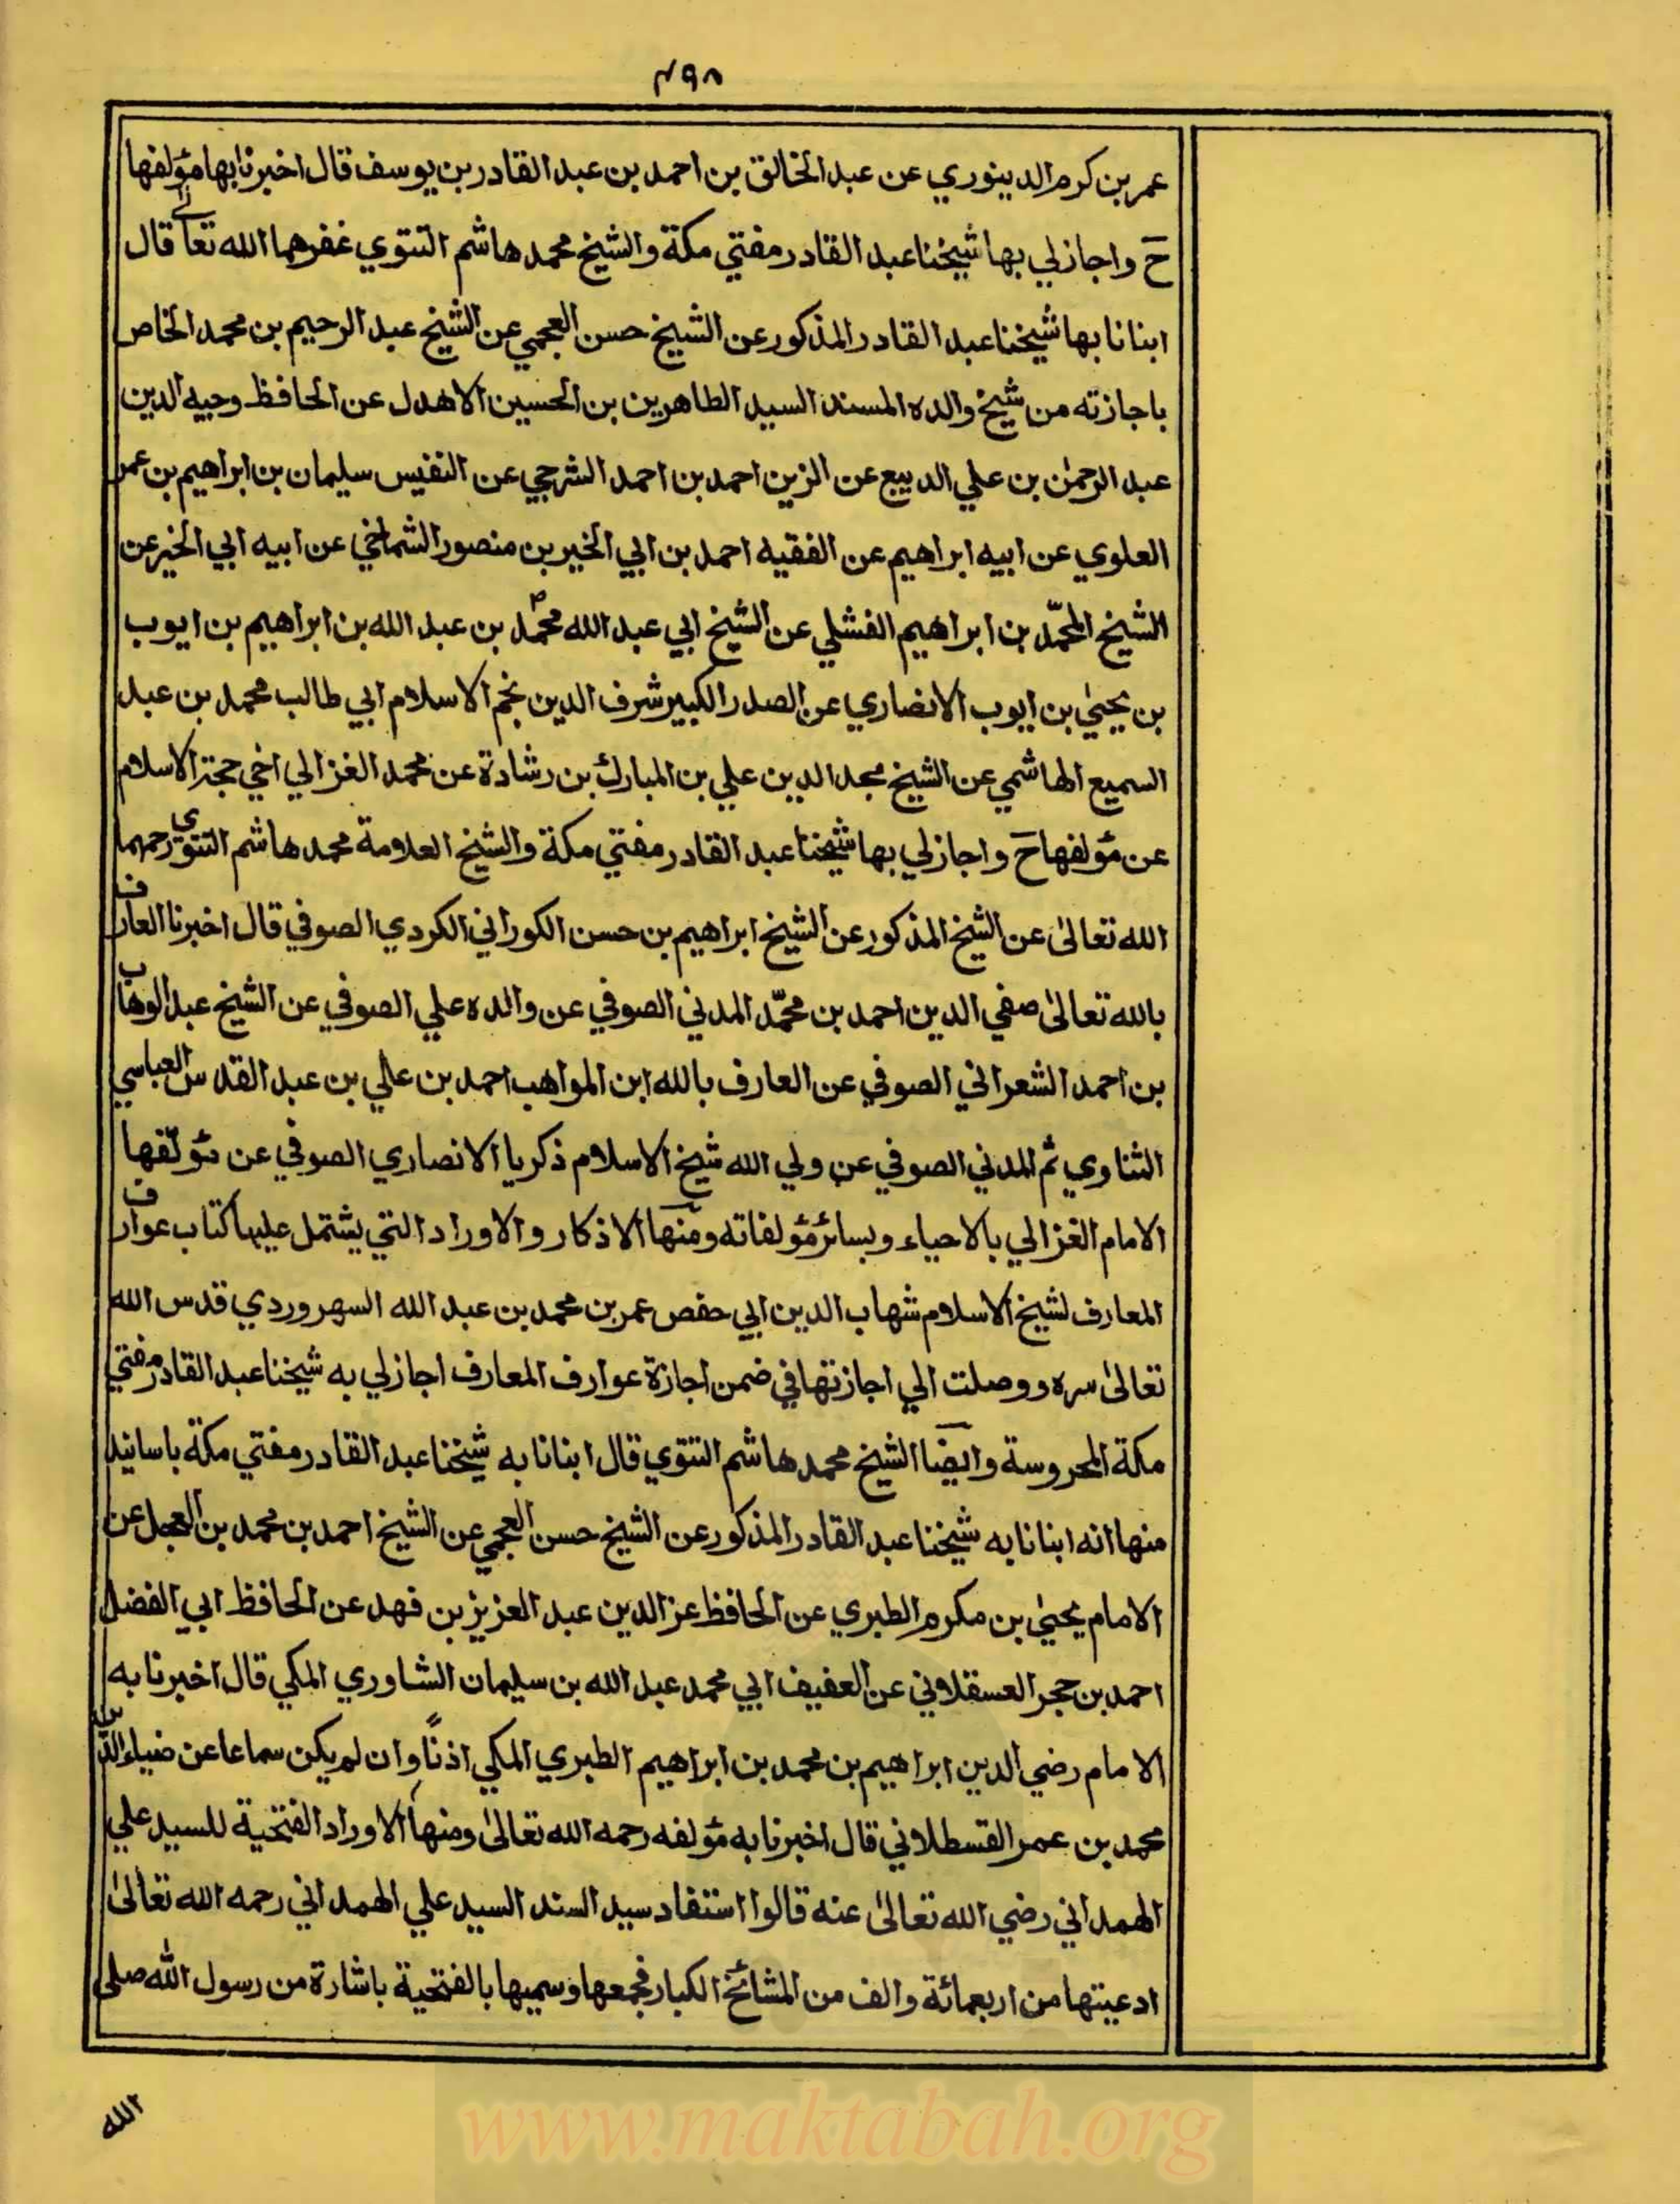 ٤٩٨
عمر بن كرم الدينوري عن عبد الخالق بن احمد بن عبد القادر بن يوسف قال اخبرنا بها مؤلفها
حَ واجازلي بها شيخنا عبد القادر مفتي مكة والشيخ محمد هاشم التتوي غفرهما الله تعالى قال
ابنانا بها شيخنا عبد القادر المذكور عن الشيخ حسن العجمي عن الشيخ عبد الرحيم بن محمد الخاص
باجازته من شيخ والده المسند السيد الطاهر بن بن الحسين الاهدل عن الحافظ وجيه الدين
عبد الرحمٰن بن علي الديبع عن الزين احمد بن احمد الشرجي عن النفيس سليمان بن ابراهيم بن عمر
العلوي عن ابيه ابراهيم عن الفقيه احمد بن ابي الخير بن منصور الشماخي عن ابيه ابي الخير عن
الشيخ المحمّد بن ابراهيم الفشلي عن الشيخ ابي عبد الله محمّد بن عبد الله بن ابراهيم بن ايوب
بن يحيىٰ بن ايوب الانصاري عن الصدر الكبير شرف الدين نجم الاسلام ابي طالب محمد بن عبد
السميع الهاشمي عن الشيخ مجد الدين علي بن المبارك بن رشادة عن محمد الغزالي اخي حجة الاسلام
عن مؤلفها حَ واجازلي بها شيخنا عبد القادر مفتي مكة والشيخ العلامة محمد هاشم التتوي رحمهما
الله تعالىٰ عن الشيخ المذكور عن الشيخ ابراهيم بن حسن الكوراني الكردي الصوفي قال اخبرنا العارف
بالله تعالىٰ صفي الدين احمد بن محمّد المدني الصوفي عن والده علي الصوفي عن الشيخ عبد الوهاب
بن احمد الشعراني الصوفي عن العارف بالله ابن المواهب احمد بن علي بن عبد القدس العباسي
الثناوي ثم المدني الصوفي عن ولي الله شيخ الاسلام ذكريا الانصاري الصوفي عن مؤلّفها
الامام الغزالي بالاحياء وبسائر مؤلفاته ومنها الاذكار والاوراد التي يشتمل عليها كتاب عوارف
المعارف لشيخ الاسلام شهاب الدين ابي حفص عمر بن محمد بن عبد الله السهروردي قدس الله
تعالىٰ سره ووصلت الي اجازتها في ضمن اجازة عوارف المعارف اجازلي به شيخنا عبد القادر مفتي
مكة المحروسة وايضا الشيخ محمد هاشم التتوي قال ابنانا به شيخنا عبد القادر مفتي مكة باسانيد
منها انه ابنانا به شيخنا عبد القادر المذكور عن الشيخ حسن العجمي عن الشيخ احمد بن محمد بن العجل عن
الامام يحيىٰ بن مكرم الطبري عن الحافظ عز الدين عبد العزيز بن فهد عن الحافظ ابي الفضل
احمد بن حجر العسقلاني عن العفيف ابي محمد عبد الله بن سليمان الشاوري المكي قال اخبرنا به
الامام رضي الدين ابراهيم بن محمد بن ابراهيم الطبري المكي اذنًا وان لم يكن سماعا عن ضياء الدين
محمد بن عمر القسطلاني قال اخبرنا به مؤلفه رحمه الله تعالىٰ ومنها الاوراد الفتحية للسيد علي
الهمداني رضي الله تعالىٰ عنه قالوا استفاد سيد السند السيد علي الهمداني رحمه الله تعالىٰ
ادعيتها من اربعمائة والف من المشائخ الكبار فجمعها وسميها بالفتحية باشارة من رسول الله صلى
الله
www.maktabah.org